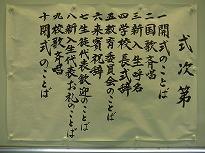 式次第
一開式のことば
二国歌斉唱
三新入生呼名
四学校長式辞
五教育委員会のことば
六来賓祝辞
七生徒代表歓迎のことば
八新入生代表お礼のことば
九校歌斉唱
十閉式のことば